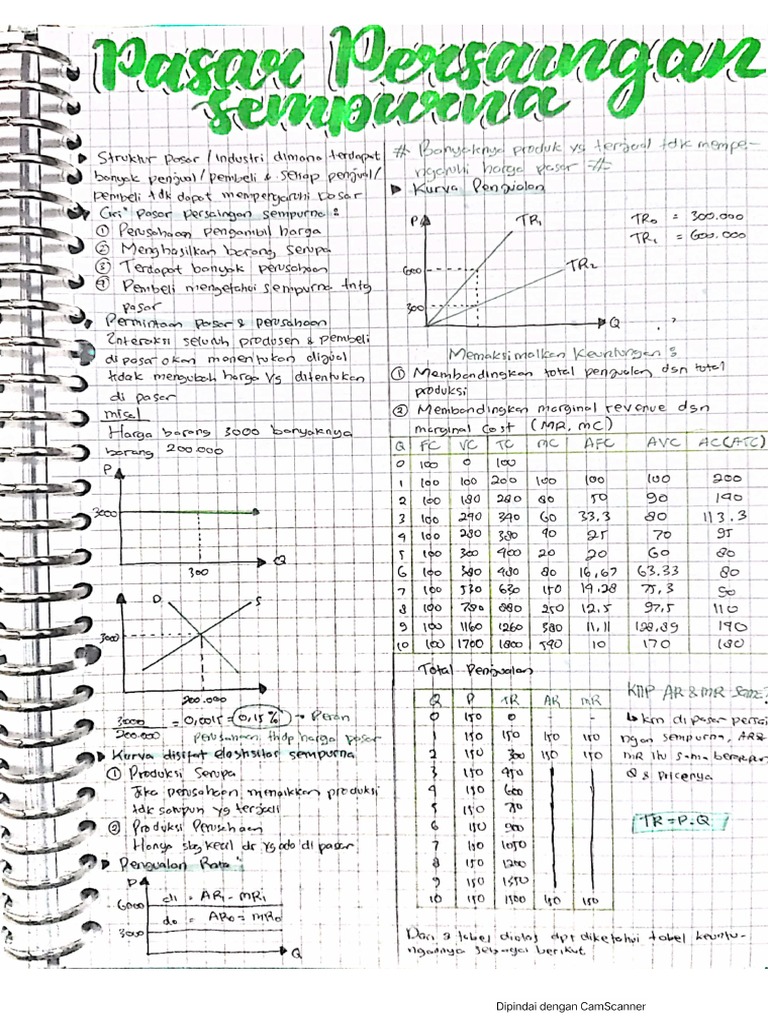 Pasar Persaingan
sempurna
Struktur pasar / industri dimana terdapat
banyak penjual / pembeli & setiap penjual /
pembeli tdk dapat mempengaruhi pasar
Ciri" pasar persaingan sempurna :
① Perusahaan pengambil harga
② Menghasilkan barang serupa
③ Terdapat banyak perusahaan
④ Pembeli mengetahui sempurna tntg
pasar
Permintaan pasar & perusahaan
Interaksi seluruh produsen & pembeli
di pasar akan menentukan
tidak mengubah harga yg ditentukan
di pasar
misal
Harga barang 3000 banyaknya
barang 200.000
P
3000
300
Q
D
S
3000
200.000
3000 = 0,0015 = 0,15 % → Peran
200.000 perusahaan thdp harga pasar
Kurva disifat elastisitas sempurna
① Produksi Serupa
Jika perusahaan menaikkan produksi
tdk satupun yg terjadi
② Produksi Perusahaan
Hanya sbg kecil dr yg ada di pasar
Penjualan Rata²
P
6000 d1 = AR1 - MR1
do = ARo = MRo
3000
Q
# Banyaknya produk yg terjual tdk mempe-
ngaruhi harga pasar #
Kurva Penjualan
P
TR1
TR2
600
300
Q
TRo = 300.000
TR1 = 600.000
Memaksimalkan Keuntungan :
① Membandingkan total penjualan dgn total
produksi
② Membandingkan marginal revenue dgn
marginal cost (MR, MC)
Q FC VC TC MC AFC AVC AC (ATC)
0 100 0 100
1 100 100 200 100 100 100 200
2 100 180 280 80 50 90 140
3 100 240 340 60 33.3 80 113.3
4 100 280 380 40 25 70 95
5 100 300 400 20 20 60 80
6 100 380 480 80 16,67 63.33 80
7 100 530 630 150 14.28 75,3 90
8 100 780 880 250 12,5 97,5 110
9 100 1160 1260 380 11,11 128,89 140
10 100 1700 1800 540 10 170 180
Total Penjualan
Q P TR AR MR
0 150 0 - -
1 150 150 150 150
2 150 300 150 150
3 150 450
4 150 600
5 150
6 150 900
7 150 1050
8 150 1200
9 150 1350
10 150 1500 150 150
Knp AR & MR sama?
↳ krn di pasar persai
ngan sempurna, AR &
MR itu sama
Q & pricenya
TR = P.Q
Dari 2 tabel diatas dpt diketahui tabel keuntu-
ngannya sebagai berikut
Dipindai dengan CamScanner